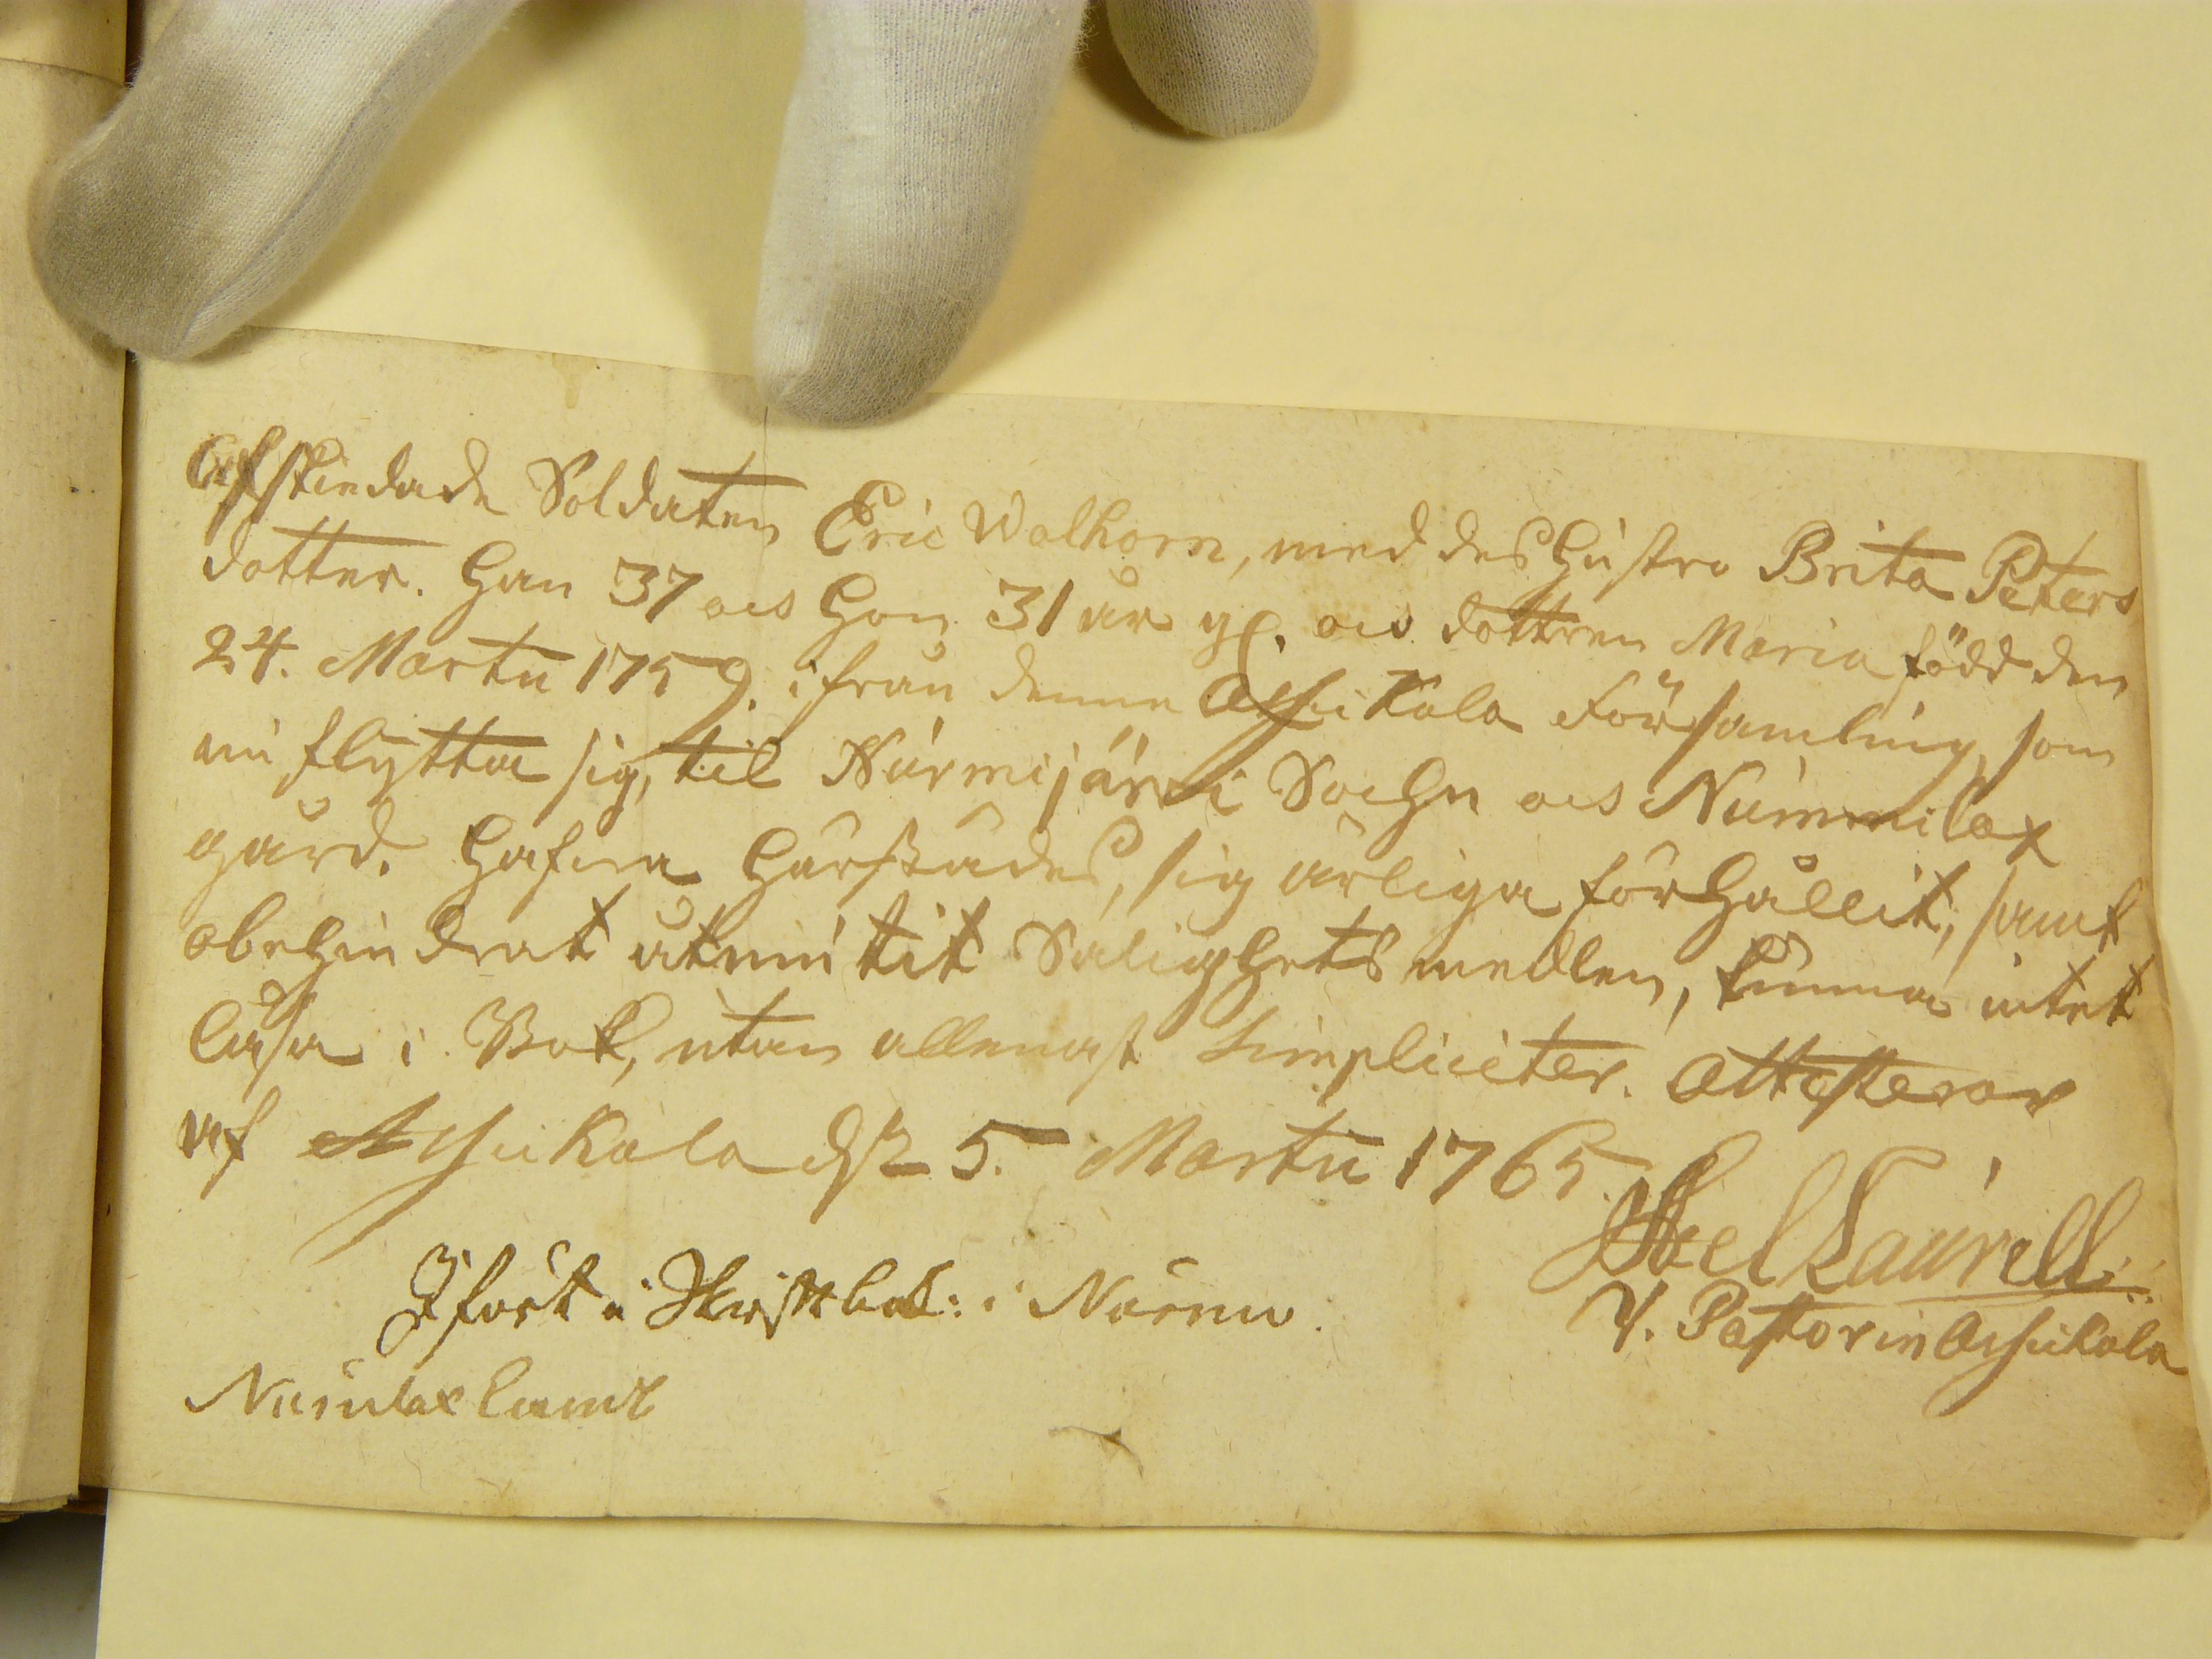 Afskiedade Soldaten Eric Walhorn, med des hustro Brita Peters
dotter. Han 37 och hon 31 år gl. och dottren Maria född den
24. Martii 1759. ifrån denne Assikala Församling, som
nu flytta sig, til Nurmijärvi Sochn och Nummilax
gård. Hafva härstädes, sig ärliga förhållit, samt
obehindrat åtniutit Salighets medlen, kunna intet
läsa i Bok, utan allenast simpliciter. Attesterar
af Assikala d. 5. Martii 1765.
Abel Laurell
V. Pastor in Assikala
Infört i Skriftbok: i Nurmi.